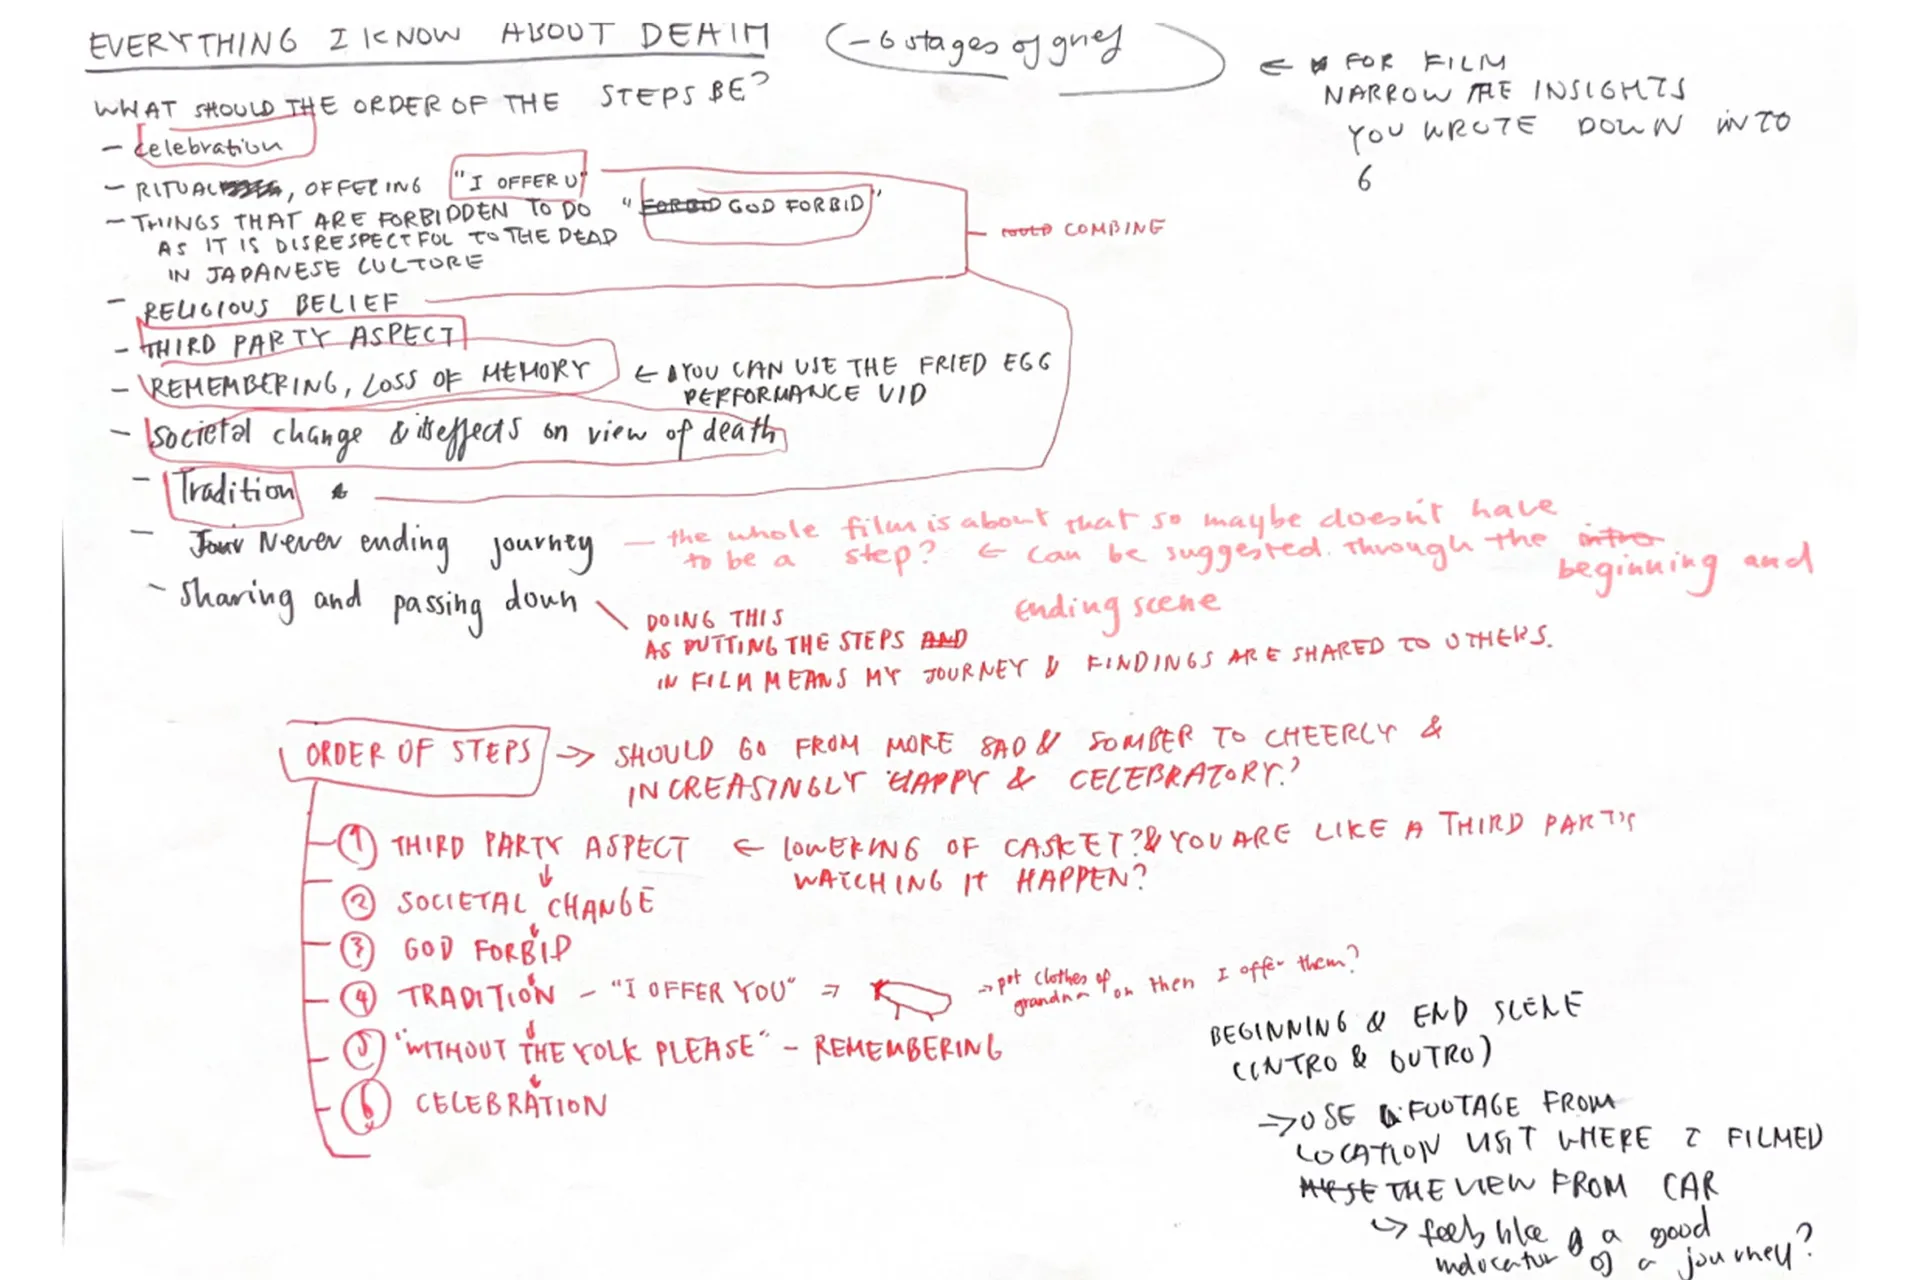 EVERYTHING I KNOW ABOUT DEATH
- 6 stages of grief
← FOR FILM
NARROW THE INSIGHTS
YOU WROTE DOWN INTO
6
WHAT SHOULD THE ORDER OF THE STEPS BE?
- Celebration
- RITUAL, OFFERING "I OFFER U"
- THINGS THAT ARE FORBIDDEN TO DO "FORBID GOD FORBID"
AS IT IS DISRESPECTFUL TO THE DEAD
IN JAPANESE CULTURE
- COULD COMBINE
- RELIGIOUS BELIEF
- THIRD PARTY ASPECT
- REMEMBERING, LOSS OF MEMORY ← YOU CAN USE THE FRIED EGG
PERFORMANCE VID
- Societal change & its effects on view of death
- Tradition
- Jour Never ending journey - the whole film is about that so maybe doesn't have
to be a step? ← can be suggested through the intro beginning and
ending scene
- Sharing and passing down
DOING THIS
AS PUTTING THE STEPS AND
IN FILM MEANS MY JOURNEY & FINDINGS ARE SHARED TO OTHERS.
ORDER OF STEPS → SHOULD GO FROM MORE SAD & SOMBER TO CHEERLY &
INCREASINGLY HAPPY & CELEBRATORY?
① THIRD PARTY ASPECT ← LOWERING OF CASKET? & YOU ARE LIKE A THIRD PARTY
WATCHING IT HAPPEN?
↓
② SOCIETAL CHANGE
↓
③ GOD FORBID
↓
④ TRADITION - "I OFFER YOU" ⇒ → put clothes of
grandma on then I offer them?
↓
⑤ "WITHOUT THE YOLK PLEASE" - REMEMBERING
↓
⑥ CELEBRATION
BEGINNING & END SCENE
(INTRO & OUTRO)
→ USE FOOTAGE FROM
LOCATION VISIT WHERE I FILMED
THE VIEW FROM CAR
↳ feels like a good
indocator of a journey?